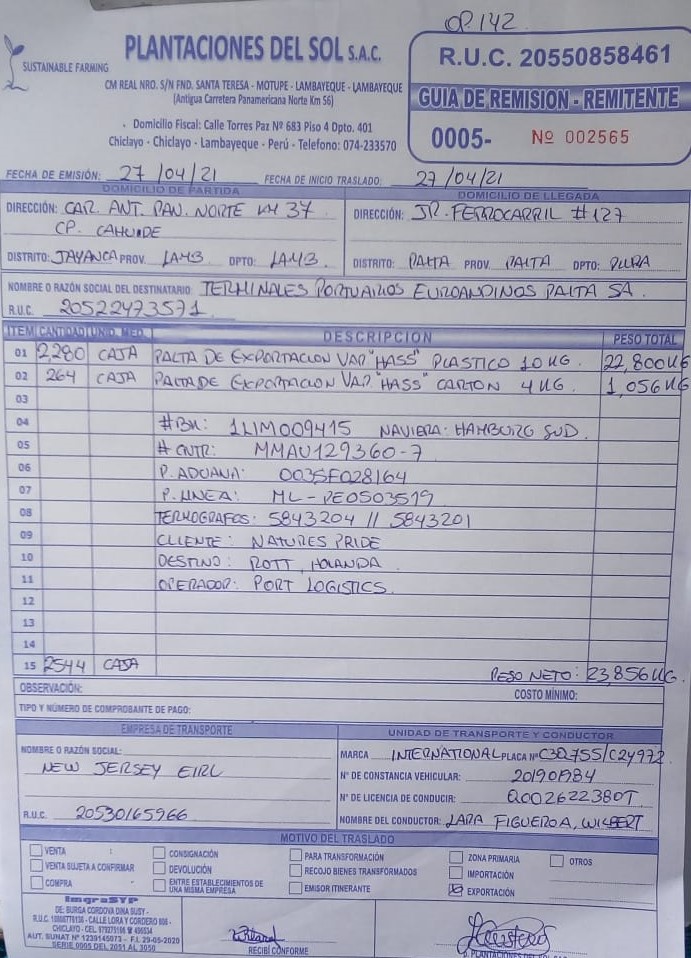 OP. 142
PLANTACIONES DEL SOL S.A.C.
SUSTAINABLE FARMING
CM REAL NRO. S/N FND. SANTA TERESA - MOTUPE - LAMBAYEQUE - LAMBAYEQUE
(Antigua Carretera Panamericana Norte Km 56)
Domicilio Fiscal: Calle Torres Paz Nº 683 Piso 4 Dpto. 401
Chiclayo - Chiclayo - Lambayeque - Perú - Telefono: 074-233570
R.U.C. 20550858461
GUIA DE REMISION - REMITENTE
0005- Nº 002565
FECHA DE EMISIÓN: 27/04/21 FECHA DE INICIO TRASLADO: 27/04/21
DOMICILIO DE PARTIDA
DIRECCIÓN: CAR. ANT. PAN. NORTE KM 37
CP. CAHUIDE
DISTRITO: JAYANCA PROV. LAMB DPTO: LAMB
DOMICILIO DE LLEGADA
DIRECCIÓN: JR. FERROCARRIL #127
DISTRITO: PAITA PROV. PAITA DPTO: PIURA
NOMBRE O RAZÓN SOCIAL DEL DESTINATARIO: TERMINALES PORTUARIOS EUROANDINOS PAITA SA.
R.U.C. 20522473571
ITEM CANTIDAD UNID. MED. DESCRIPCION PESO TOTAL
01 2,280 CAJA PALTA DE EXPORTACION VAR "HASS" PLASTICO 10 KG. 22,800KG
02 264 CAJA PALTA DE EXPORTACION VAR "HASS" CARTON 4 KG. 1,056KG
03
04 #BK: 1LIM009415 NAVIERA: HAMBURG SUD.
05 # CNTR: MMAU129360-7
06 P. ADUANA: 0035F028164
07 P. LINEA: ML-PE0503519
08 TERMOGRAFOS: 5843204 // 5843201
09 CLIENTE: NATURES PRIDE
10 DESTINO: ROTT, HOLANDA
11 OPERADOR: PORT LOGISTICS.
12
13
14
15 2544 CAJA PESO NETO: 23,856KG.
OBSERVACIÓN: COSTO MÍNIMO:
TIPO Y NÚMERO DE COMPROBANTE DE PAGO:
EMPRESA DE TRANSPORTE
NOMBRE O RAZÓN SOCIAL:
NEW JERSEY EIRL
R.U.C. 20530165966
UNIDAD DE TRANSPORTE Y CONDUCTOR
MARCA INTERNATIONAL PLACA Nº C3Q755/C2Y972
Nº DE CONSTANCIA VEHICULAR:
Nº DE LICENCIA DE CONDUCIR: Q002622380T
NOMBRE DEL CONDUCTOR: LARA FIGUEROA, WILBERT
MOTIVO DEL TRASLADO
VENTA
VENTA SUJETA A CONFIRMAR
COMPRA
CONSIGNACIÓN
DEVOLUCIÓN
ENTRE ESTABLECIMIENTOS DE
UNA MISMA EMPRESA
PARA TRANSFORMACIÓN
RECOJO BIENES TRANSFORMADOS
EMISOR ITINERANTE
ZONA PRIMARIA
IMPORTACIÓN
EXPORTACIÓN
OTROS
ImgraSYP
DE: BURGA CORDOVA DINA SUSY -
CALLE LORA Y CORDERO
AUT. SUNAT Nº 1239145073 - F.I. 29-05-2020
SERIE 0005 DEL 2051 AL 3050
RECIBÍ CONFORME